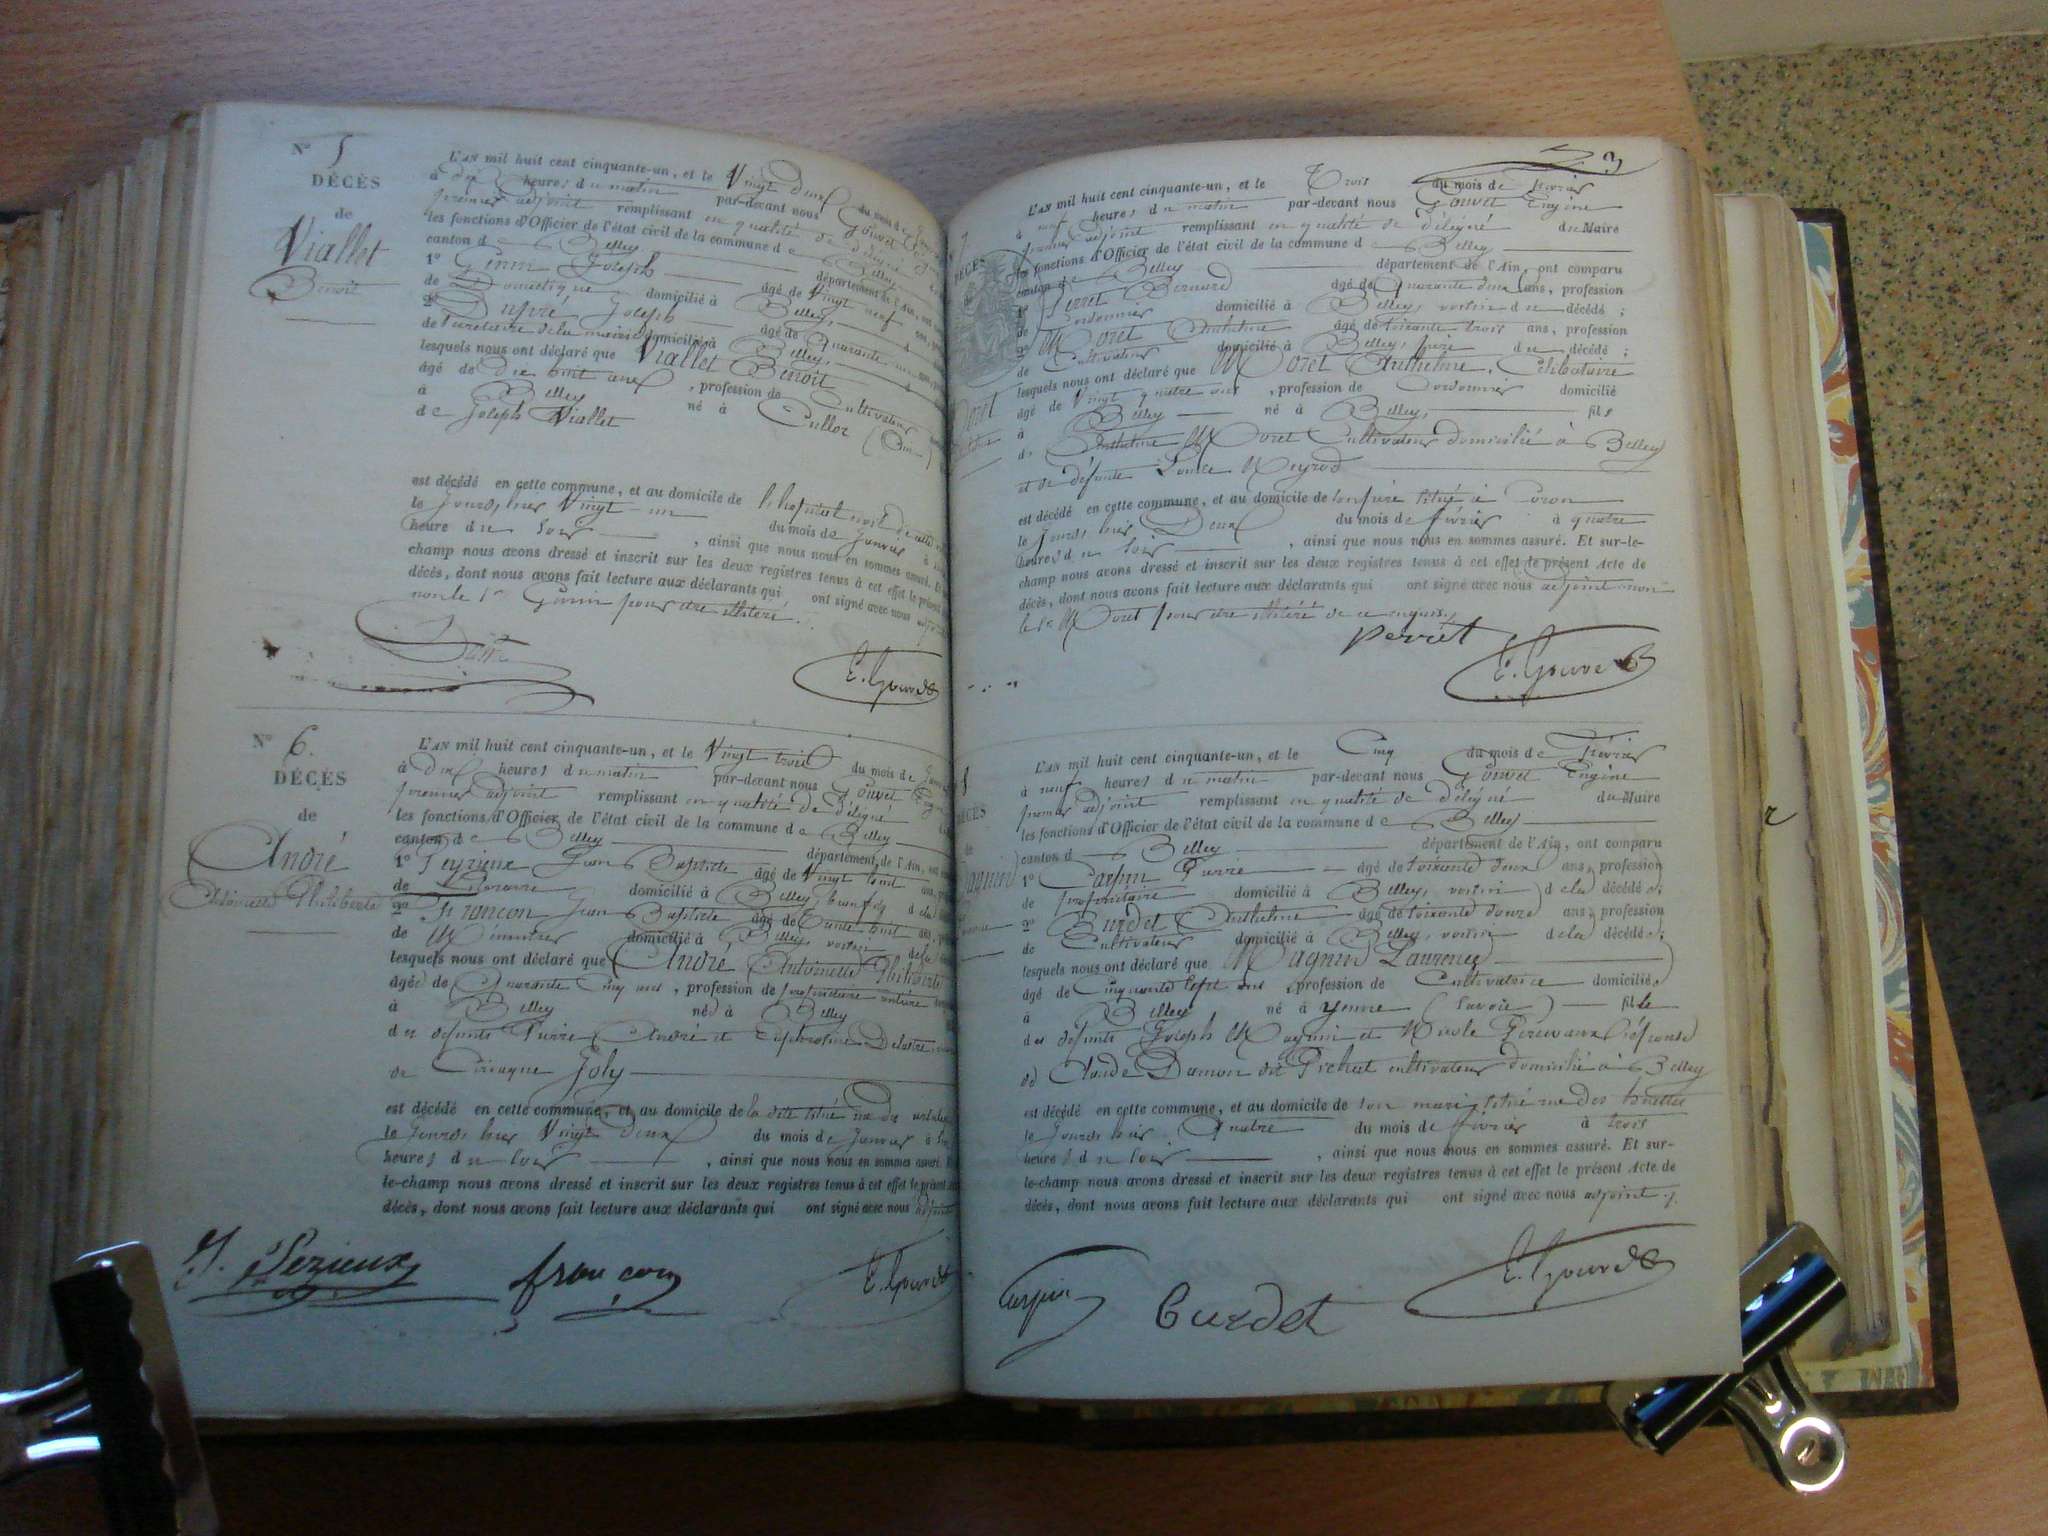 N° 5
DÉCÈS
de
Viallet
Benoit
L'AN mil huit cent cinquante-un, et le Vingt deux du mois de
à dix heures du matin par-devant nous Gouvet
premier adjoint remplissant en qualité de délégué
les fonctions d'Officier de l'état civil de la commune de Belley
canton de Belley département de l'Ain, ont
1° Genin Joseph âgé de Vingt neuf ans,
de Domestique domicilié à Belley,
2° Dupré Joseph âgé de Quarante
de secretaire de la mairie domicilié à Belley,
lesquels nous ont déclaré que Viallet Benoit
âgé de dix huit ans, profession de Cultivateur
à Belley né à Culloz (Ain)
de Joseph Viallet
est décédé en cette commune, et au domicile de l'hopital
le Jourd'hier Vingt-un du mois de Janvier à
heure du soir, ainsi que nous nous en sommes assuré. Et
champ nous avons dressé et inscrit sur les deux registres tenus à cet effet le présent
décès, dont nous avons fait lecture aux déclarants qui ont signé avec nous
non le Sr Genin pour être illitéré.
E. Gouvet
N° 6.
DÉCÈS
de
André
Antoinette Philiberte
L'AN mil huit cent cinquante-un, et le Vingt trois du mois de
à dix heures du matin par-devant nous Gouvet
premier adjoint remplissant en qualité de délégué
les fonctions d'Officier de l'état civil de la commune de Belley
canton de Belley département de l'Ain, ont
1° Peyrieux Jean Baptiste âgé de Vingt huit ans,
de Libraire domicilié à Belley, de la
2° Francon Jean Baptiste âgé de trente huit ans,
de Menuisier domicilié à Belley, voisin de la
lesquels nous ont déclaré que André Antoinette Philiberte
âgée de Quarante Cinq ans, profession de propriétaire rentière
à Belley née à Belley
des défunts Pierre André et
de Ciriaque Joly
est décédé en cette commune, et au domicile de la dite situé rue des
le Jourd'hier Vingt deux du mois de Janvier à
heures du soir, ainsi que nous nous en sommes assuré.
le-champ nous avons dressé et inscrit sur les deux registres tenus à cet effet le présent
décès, dont nous avons fait lecture aux déclarants qui ont signé avec nous
francon
E. Gouvet
3
7
DÉCÈS
L'AN mil huit cent cinquante-un, et le Trois du mois de février
à neuf heures du matin par-devant nous Gouvet Eugène
premier adjoint remplissant en qualité de délégué du Maire
les fonctions d'Officier de l'état civil de la commune de Belley
canton de Belley département de l'Ain, ont comparu
1° Perret Bernard âgé de Quarante deux ans, profession
de Cordonnier domicilié à Belley, voisin du décédé;
2° Moret Anthelme âgé de soixante trois ans, profession
de Cultivateur domicilié à Belley, père du décédé;
lesquels nous ont déclaré que Moret Anthelme, Célibataire
âgé de Vingt quatre ans, profession de Cordonnier domicilié
à Belley né à Belley, fils
d' Anthelme Moret Cultivateur domicilié à Belley
et de défunte Louise
est décédé en cette commune, et au domicile de son père situé à Coron
le Jourd'hier Deux du mois de février à quatre
heures du soir, ainsi que nous nous en sommes assuré. Et sur-le-
champ nous avons dressé et inscrit sur les deux registres tenus à cet effet le présent Acte de
décès, dont nous avons fait lecture aux déclarants qui ont signé avec nous adjoint non
le Sr Moret pour être illitéré de ce enquis
perret
E. Gouvet
8
DÉCÈS
L'AN mil huit cent cinquante-un, et le Cinq du mois de Février
à neuf heures du matin par-devant nous Gouvet Eugène
premier adjoint remplissant en qualité de délégué du Maire
les fonctions d'Officier de l'état civil de la commune de Belley
canton d Belley département de l'Ain, ont comparu
1° Carpin Pierre âgé de soixante deux ans, profession
de propriétaire domicilié à Belley, voisin de la décédée;
2° Burdet Anthelme âgé de soixante douze ans, profession
de Cultivateur domicilié à Belley, voisin de la décédée;
lesquels nous ont déclaré que Magnin Laurence
âgé de Cinquante sept ans, profession de Cultivatrice domiciliée
à Belley né à Yenne (Savoie) fille
des défunts Joseph Magnin et Nicole
de Claude Damon dit Pichat cultivateur domicilié à Belley
est décédé en cette commune, et au domicile de son mari, situé rue des
le Jourd'hier Quatre du mois de février à trois
heures du soir, ainsi que nous nous en sommes assuré. Et sur-
le-champ nous avons dressé et inscrit sur les deux registres tenus à cet effet le présent Acte de
décès, dont nous avons fait lecture aux déclarants qui ont signé avec nous adjoint
Burdet
E. Gouvet